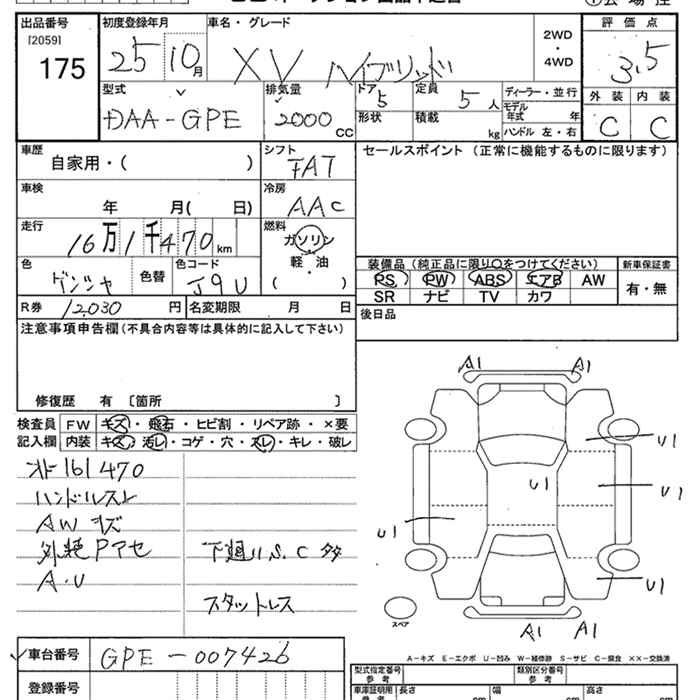 出品番号 初度登録年月 車名・グレード 評価点
[2059]
175
25 10月 XV ハイブリッド 2WD・4WD 3.5
型式 排気量 ドア 5 定員 5人 ディーラー・並行 外装 内装
DAA-GPE 2000 CC 形状 積載 kg モデル年式 年 C C
ハンドル 左・右
車歴 シフト セールスポイント (正常に機能するものに限ります)
自家用・( ) FAT
車検 冷房
年 月( 日) AAC
走行 燃料
16万1千470km ガソリン
軽・油
( )
色 色替 色コード 装備品 (純正品に限り○をつけてください) 新車保証書
J9U PS PW ABS エアB AW 有・無
SR ナビ TV カワ
R券 12,030円 名変期限 月 日 後日品
注意事項申告欄 (不具合内容等は具体的に記入して下さい)
修復歴 有 〔箇所 〕
検査員 FW キズ・飛石・ヒビ割・リペア跡・×要
記入欄 内装 キズ・汚レ・コゲ・穴・スレ・キレ・破レ
161470
ハンドルスレ
AWキズ
下廻りS.C多
スタットレス
A1 A1
U1
U1 U1
U1
U1
A1 A1
スペア
A-キズ E-エクボ U-凹み W-補修跡 S-サビ C-腐食 XX-交換済
車台番号 GPE-007426
登録番号
型式指定番号 参考 類別区分番号 参考
車庫証明用 参考 長さ cm 幅 cm 高さ cm